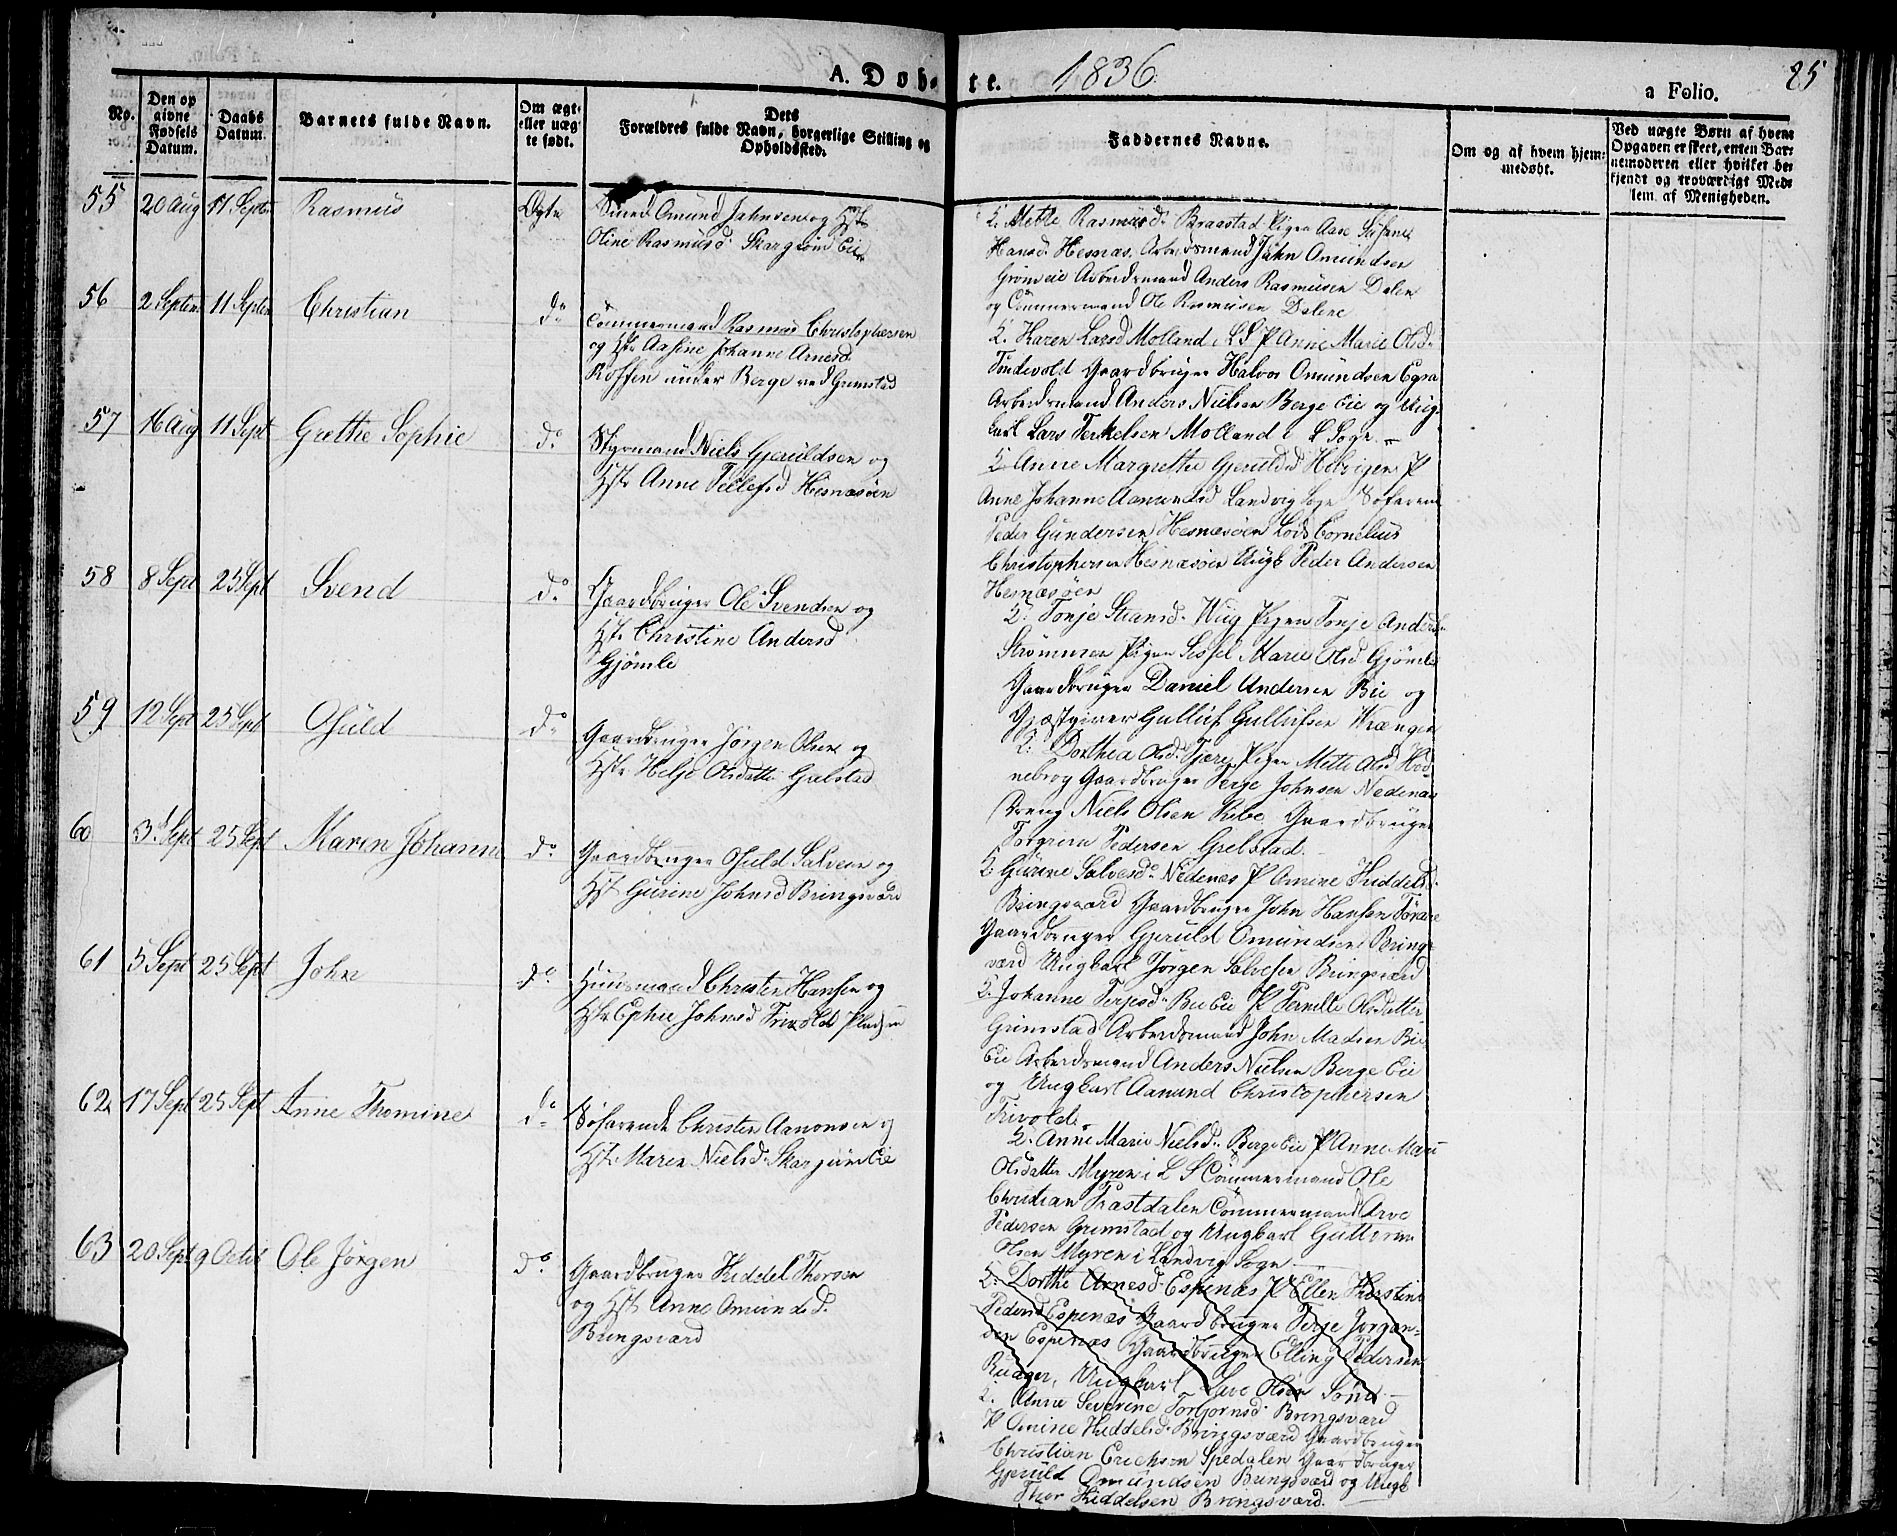 A. Døbte. 1836.
a Folio. 25
No.
Den opgivne Fødsels Datum.
Daabs Datum.
Barnets fulde Navn.
Om ægte eller uægte født.
Dets Forældres fulde Navn, borgerlige Stilling og Opholdssted.
Faddernes Navne.
Om og af hvem hjemmedøbt.
Ved uægte Børn af hvem Opgaven er skeet, enten Barnemoderen eller hvilket bekjendt og troværdigt Medlem af Menigheden.
55 20 Aug 11 Septr Rasmus Ægte
Smed Omund Jahnsen og Hstr
Oline Rasmusd. Skargrøm Eie
K. Mette Rasmusd. Braastad Pigen Aase
Hansd. Hesnæs. Arbeidsmand Jahn Omundsen
Grømeie Arbeidsmand Anders Rasmusen Dalen
og Tömmermand Ole Rasmusen Dalene
56 2 Septem 11 Septem Christian do
Tömmermand Rasmus Christophersen
og Hstr Aasine Johanne Arnesd.
Roffen under Berge ved Grimstad
K. Karen Larsd Molland L S P Anne Marie Olsd.
Tindevold Gaardbruger Halvor Omundsen Egra
Arbeidsmand Anders Nielsen Berge Eie og Ung
karl Lars Terkelsen Molland i L Sogn
57 16 Aug 11 Sept Grethe Sophie do
Styrmand Niels Gjeruldsen og
Hstr Anne Tellefsd Hesnæsøen
K Anne Margrethe Gjeruldsd Hibrigen P
Anne Johanne Aanundsd Landvig Sogn Søfarende
Peder Gundersen Hesnæsøen Lods Cornelius
Christophersen Hesnæsøen Ungk Peder Andersen
Hesnæsøen
58 8 Sept 25 Sept Svend do
Gaardbruger Ole Svendsen og
Hstr Christine Andersd
Gjømle
K. Tonje Svensd. Wiig Pigen Tonje Andersd.
Strømmen Pigen Sissel Marie Olsd Gjømle
Gaardbruger Daniel Andersen Bie og
Gjæstgiver Gulluf Gullufsen Wrængen
59 12 Sept 25 Sept Osuld do
Gaardbruger Jørgen Olsen og
Hstr Helje Olsdatter Galstad
K. Dorthea Olsd. Tjære Pigen Mette Olsd Hod
nebrog Gaardbruger Terje Johnsen Nedenæs
Dreng Niels Olsen Ribe Gaardbruger
Torgrim Pedersen Grebstad
60 3d Sept 25 Sept Maren Johanne do
Gaardbruger Osuld Salvesen og
Hst Gurine Johnsd Bringsværd
K. Gurine Salvesd. Nedenæs P Amine Kiddelsd.
Bringsværd Gaardbruger John Hansen
Gaardbruger Gjeruld Omundsen Brings
værd Ungkarl Jørgen Salvesen Bringsværd
61 5 Sept 25 Sept John do
Huusmand Christen Hansen og
Hstr Ephie Johnsd Trivolds Pladsen
K. Johanne Terjesd. Bie Eie P Pernille Olsdatter
Grimstad Arbeidsmand John Madsen Bie
Eie Arbeidsmand Anders Nielsen Berge Eie
og Ungkarl Aanund Christophersen
Trivold
62 17 Sept 25 Sept Anne Thomine do
Søfarende Christen Aanonsen og
Hstr Maren Nielsd. Skargrøm Eie
K. Anne Marie Nielsd. Berge Eie P Anne Marie
Olsdatter Myren i L S Tömmermand Ole
Christian Tömmermand Arve
Pedersen Grimstad og Ungkarl Guttorm
Olsen Myren i Landvig Sogn
63 20 Sept 9 Octob Ole Jörgen do
Gaardbruger Kiddel Thorsen
og Hstr Anne Omundsd.
Bringsværd
K. Dorthe Arnesd. Espenæs P Ellen Kirstine
Pedersd Espenæs Gaardbruger Terje Jorgen-
sen Espenæs Gaardbruger Elling Pedersen
Ungkarl Olsen
K. Anne Severine Torbjørnsd. Bringsværd
P Amine Kiddelsd. Bringsværd Gaardbruger
Christian Erichsen Spedalen Gaardbruger
Gjeruld Omundsen Bringsværd og Ungk
Thor Kiddelsen Bringsværd.